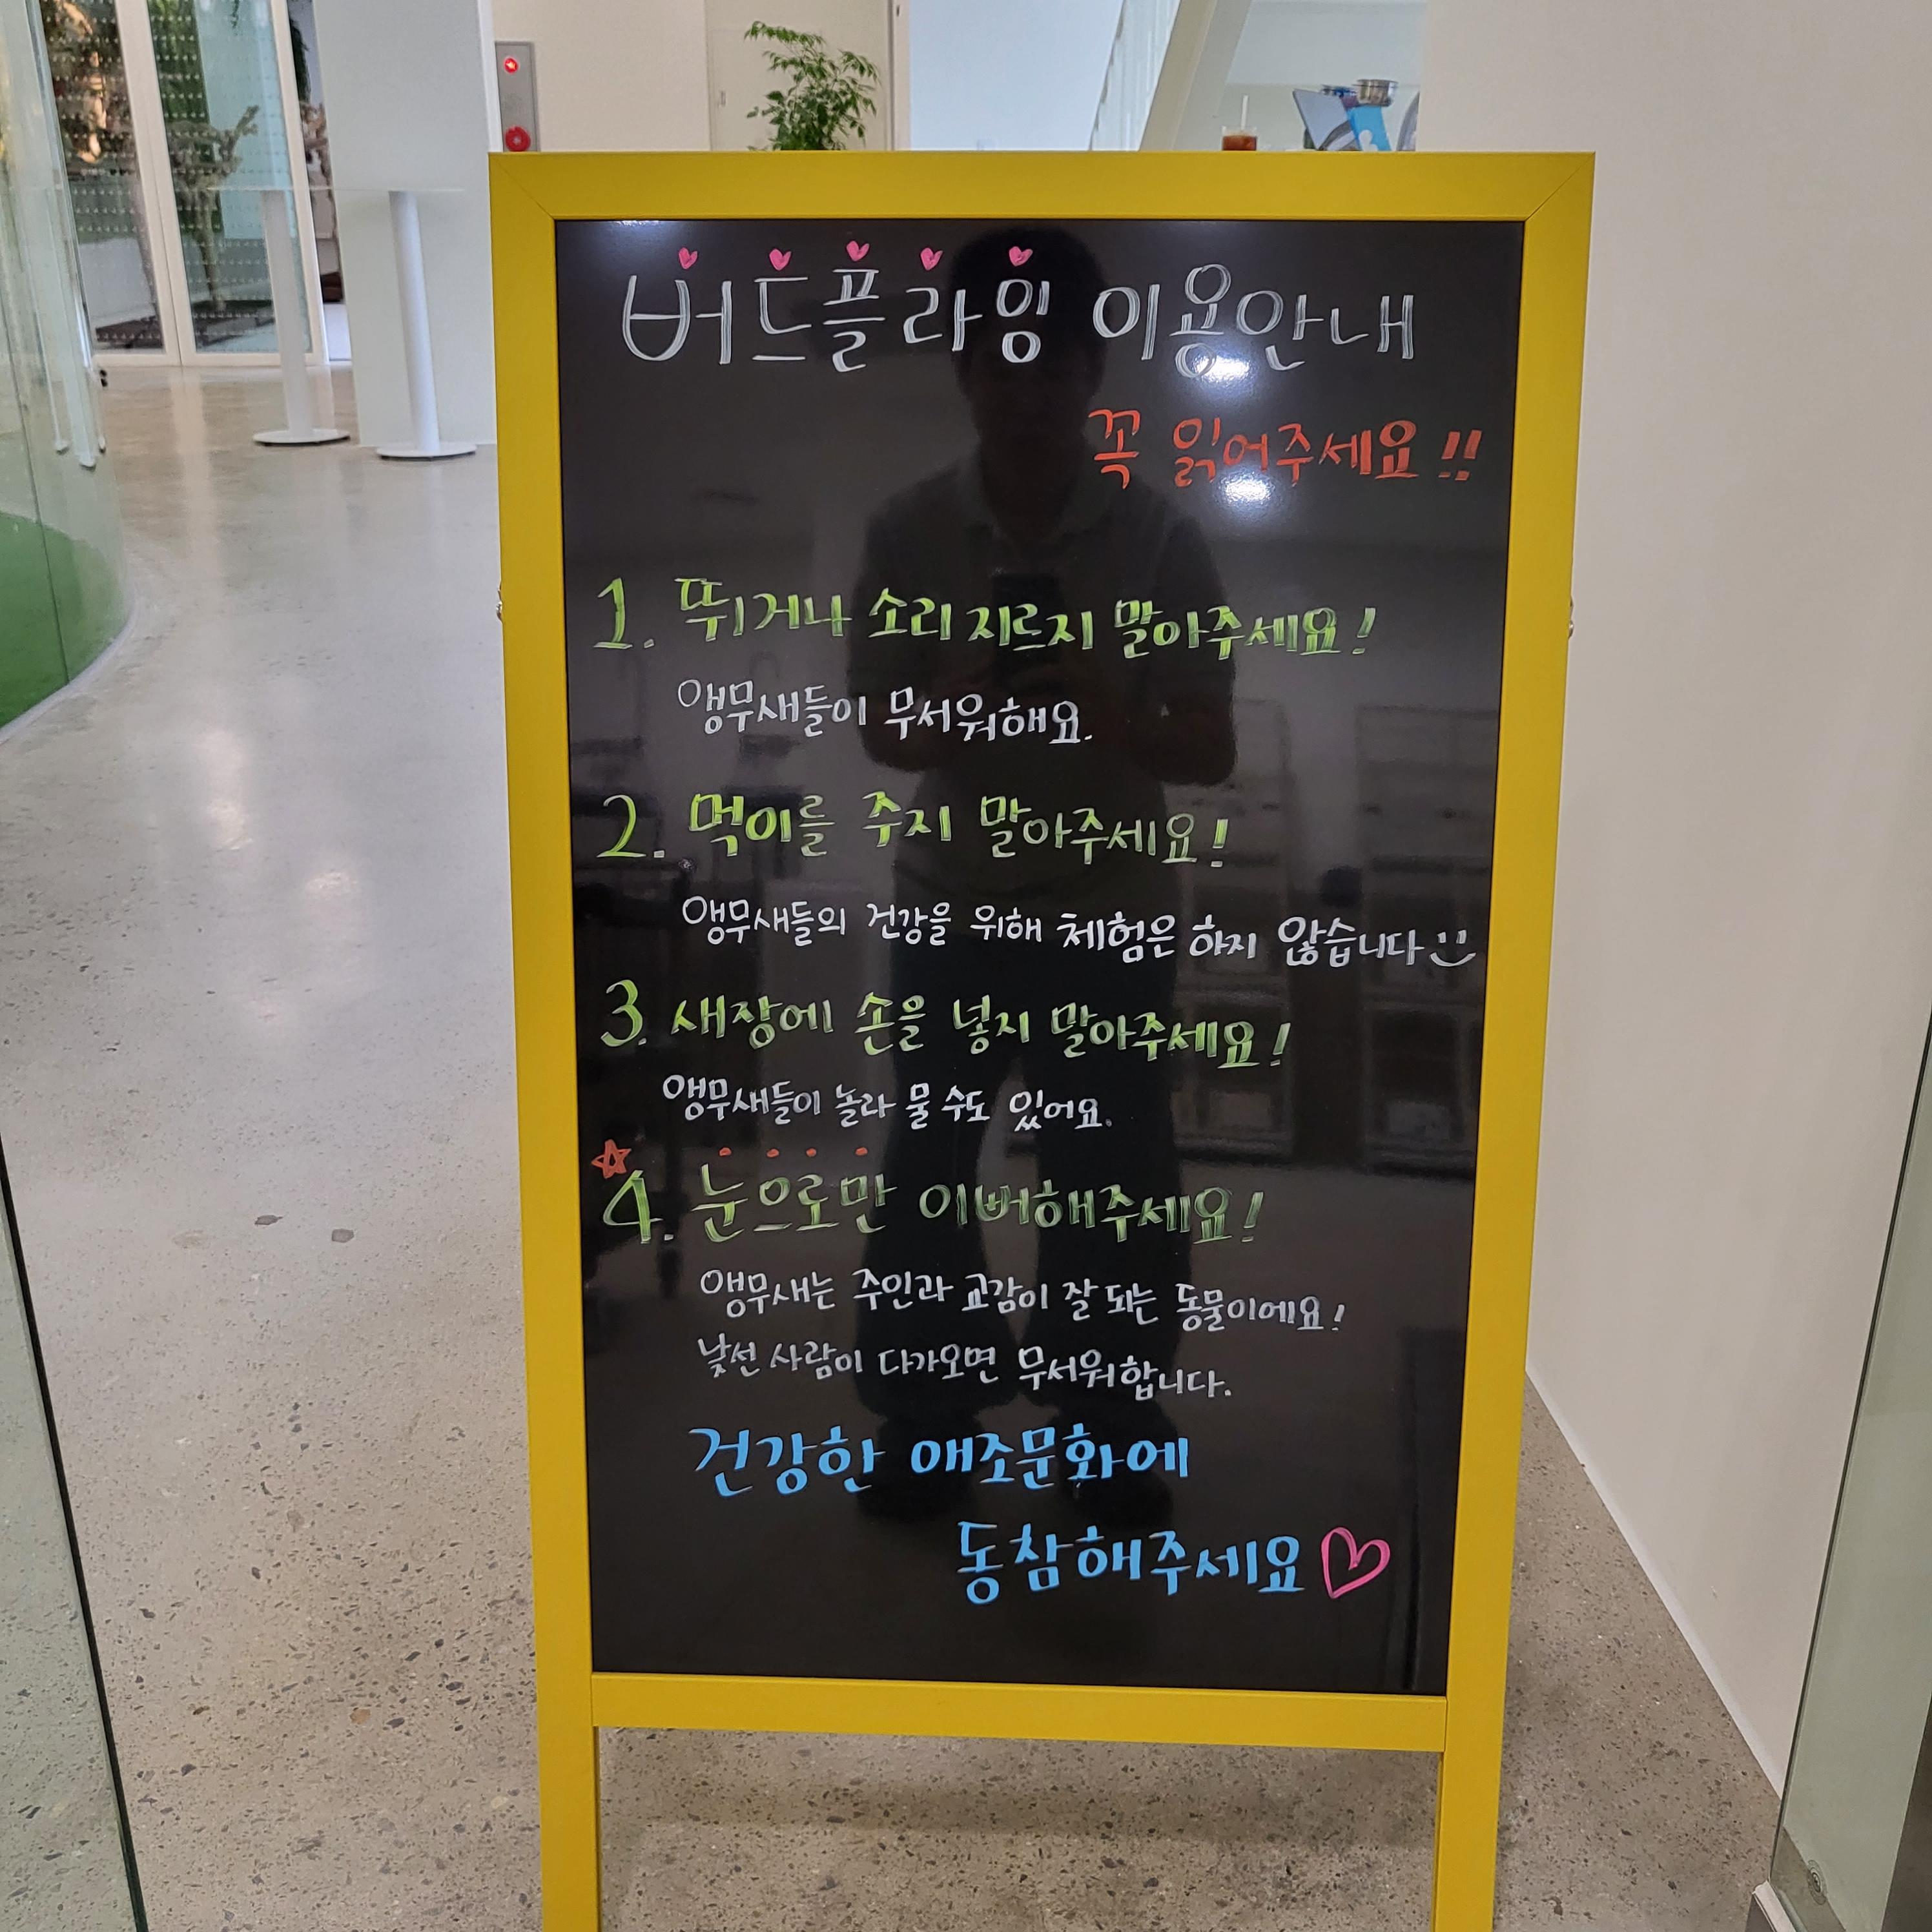 버드플라잉 이용안내
꼭 읽어주세요!!
1. 뛰거나 소리지르지 말아주세요!
앵무새들이 무서워해요.
2. 먹이를 주지 말아주세요!
앵무새들의 건강을 위해 체험은 하지 않습니다
3. 새장에 손을 넣지 말아주세요!
앵무새들이 놀라 물 수도 있어요.
4. 눈으로만 이뻐해주세요!
앵무새는 주인과 교감이 잘 되는 동물이에요!
낯선 사람이 다가오면 무서워합니다.
건강한 애조문화에
동참해주세요